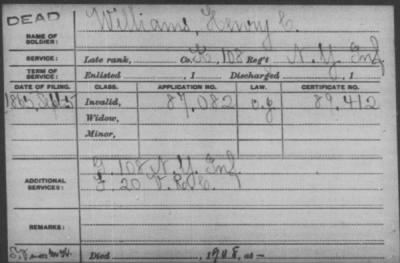 DEAD
NAME OF SOLDIER: Williams, Henry C.
SERVICE: Late rank, Co. K, 108 Reg't N.Y. Inf.
TERM OF SERVICE: Enlisted , 1 Discharged , 1
DATE OF FILING. CLASS. APPLICATION NO. LAW. CERTIFICATE NO.
1865, Sept Invalid, 87,082 89,412
Widow,
Minor,
ADDITIONAL SERVICES: F. 108 N.Y. Inf.
F. 20 V.R.C.
REMARKS:
Died , 1908, at -